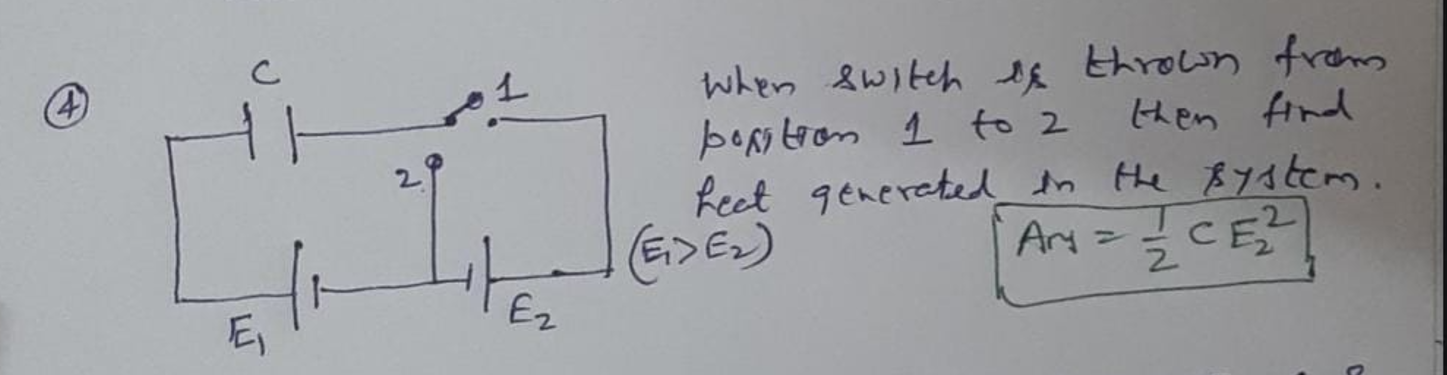 ④
C
1
2.
E₁
E₂
When switch is thrown from
position 1 to 2 then find
heat generated in the system.
(E₁>E₂)
Ans = 1/2 C E₂²